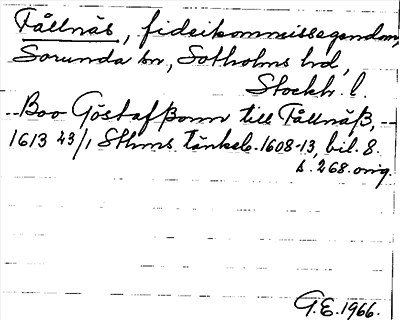 Tållnäs, fideikommissegendom,
Sorunda sn, Sotholms hd,
Stockh. l.
Boo Göstafßonn till Tållnäß,
1613 23/1 Sthms tänkeb. 1608-13, bil. 8.
s. 268. orig.
G.E. 1966.